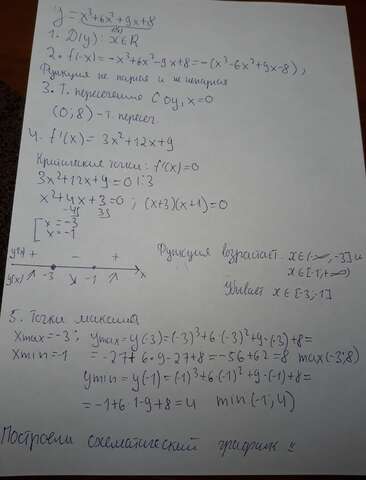 y = x³+6x²+9x+8
1. D(y): x∈R
2. f(-x) = -x³+6x²-9x+8 = -(x³-6x²+9x-8),
Функция не парная и не непарная
3. Т. пересечения с Oy, x=0
(0; 8) - т. пересеч
4. f'(x) = 3x²+12x+9
Критические точки: f'(x)=0
3x²+12x+9=0 |:3
x²+4x+3=0; (x+3)(x+1)=0
[x=-3
x=-1
y'(x) + - +
y(x) -3 -1 x
Функция возрастает x∈(-∞, -3] и
x∈[-1,+∞)
Убывает x∈[-3;-1]
5. Точки максима
xmax=-3; ymax=y(-3)=(-3)³+6·(-3)²+9·(-3)+8=
xmin=-1 = -27+6·9-27+8=-56+62=8 max(-3;8)
ymin=y(-1)=(-1)³+6·(-1)²+9·(-1)+8=
=-1+6·1-9+8=4 min(-1;4)
Построели схематический графник